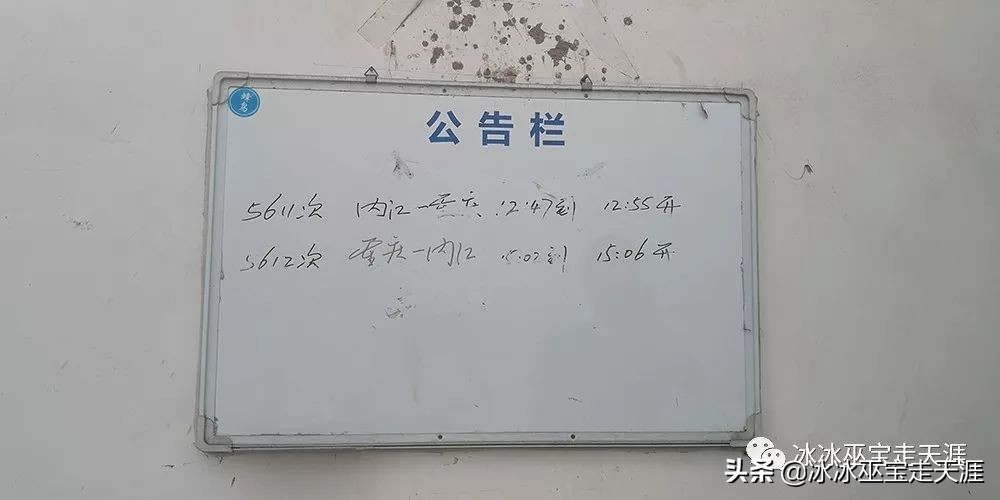 蜂鸟
公告栏
5611次 内江-重庆 12:47到 12:55开
5612次 重庆-内江 15:02到 15:06开
冰冰巫宝走天涯
头条@冰冰巫宝走天涯